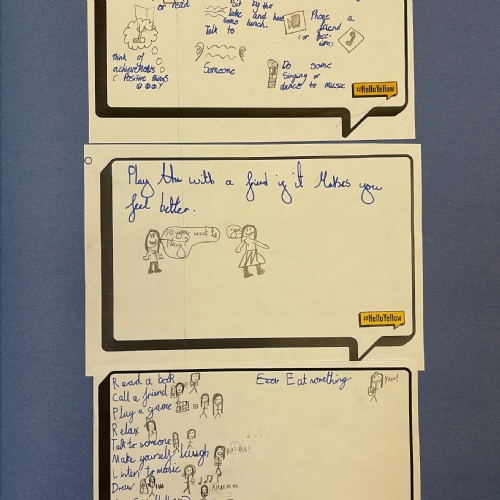 or read
Sit by the
lake and have
some lunch.
Talk to
Someone
Phone a
friend
(or face
time)
Think of
achievements
(Positive things
Do some
Singing or
dance to music
#HelloYellow
Play the with a friend if it Makes you
feel better.
Do you want to
Play?
yes
#HelloYellow
Read a book
Call a friend
Play a game
Relax
Talk to someone
Make yourself laugh
Ha! Ha!
Listen to music
Draw
Eat something
Yum!